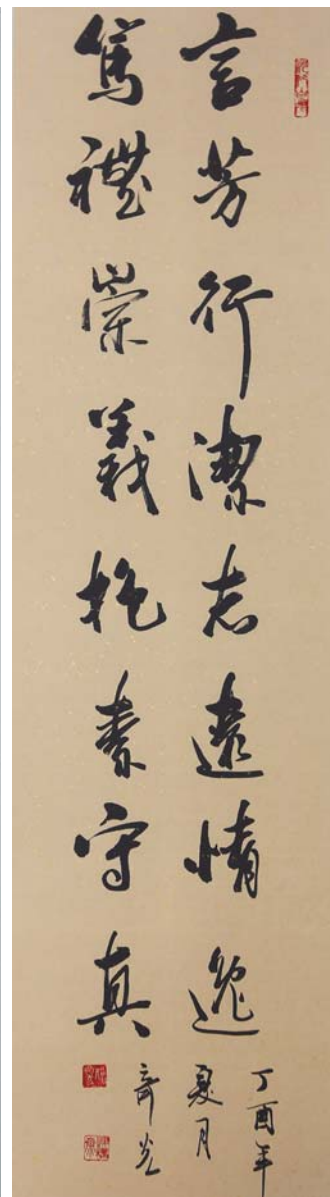 言芳行潔志遠情逸
篤禮崇義抱素守真
丁酉年
夏月
奇光